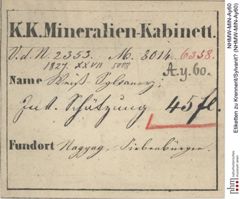 K.K. Mineralien-Kabinett.
V.d.N. 2353. M. 3014. 6358.
1827. XXVII
A.y.60.
Name Weiß Sylvanerz.
Int. Schätzung 45 fl.
Fundort Nagyag. Siebenbürgen.
NHMW-MIN-Ay60.
Etiketten zu Krennerit/Sylvanit? (NHMW-MIN-Ay60)
nhm